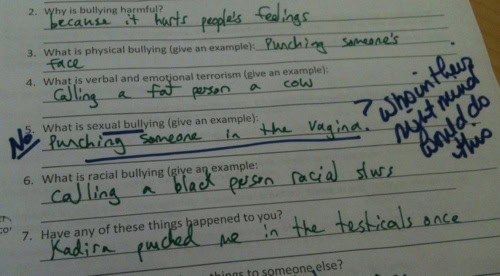 2. Why is bullying harmful?
because it hurts people's feelings
3. What is physical bullying (give an example): Punching someone's
face
4. What is verbal and emotional terrorism (give an example):
Calling a fat person a cow
No 5. What is sexual bullying (give an example):
Punching someone in the vagina.
? who in their
right mind
would do
this
6. What is racial bullying (give an example:
Calling a black person racial slurs
7. Have any of these things happened to you?
Kadira puched me in the testicals once
things to someone else?